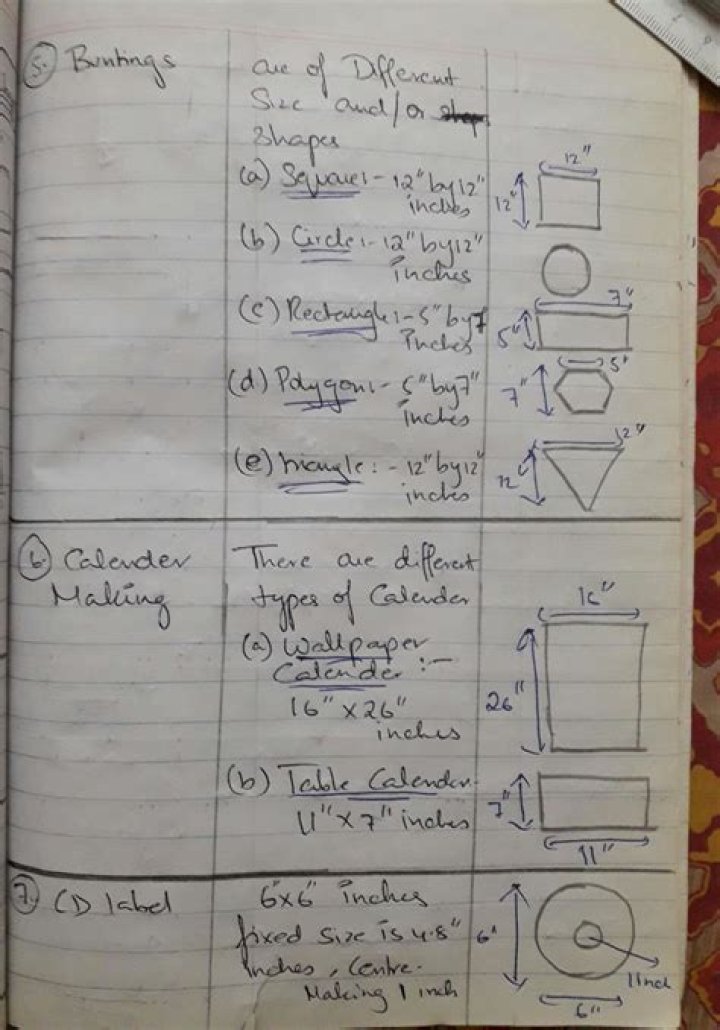 5. Buntings
are of Different
Size and/or
shapes
(a) Square:- 12" by 12"
inches
12"
12"
(b) Circle:- 12" by 12"
inches
(c) Rectangle:- 5" by 7
inches
7"
5"
(d) Polygon:- 5" by 7"
inches
5"
7"
(e) triangle:- 12" by 12"
inches
12"
12"
6. Calender
Making
There are different
types of Calender
(a) Wallpaper
Calender :-
16" X 26"
inches
16"
26"
(b) Table Calender
11" X 7" inches
7"
11"
7. CD label
6"x6" inches
fixed size is 4.8"
inches, Centre.
Making 1 inch
6"
1 inch
6"